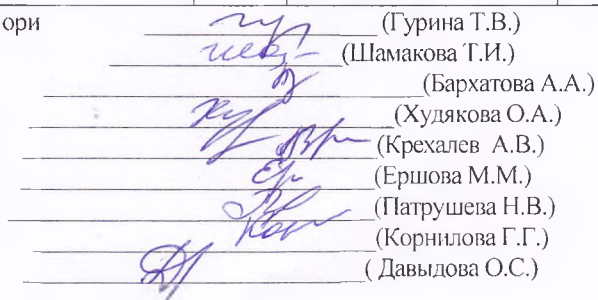 ори (Гурина Т.В.)
(Шамакова Т.И.)
(Бархатова А.А.)
(Худякова О.А.)
(Крехалев А.В.)
(Ершова М.М.)
(Патрушева Н.В.)
(Корнилова Г.Г.)
( Давыдова О.С.)